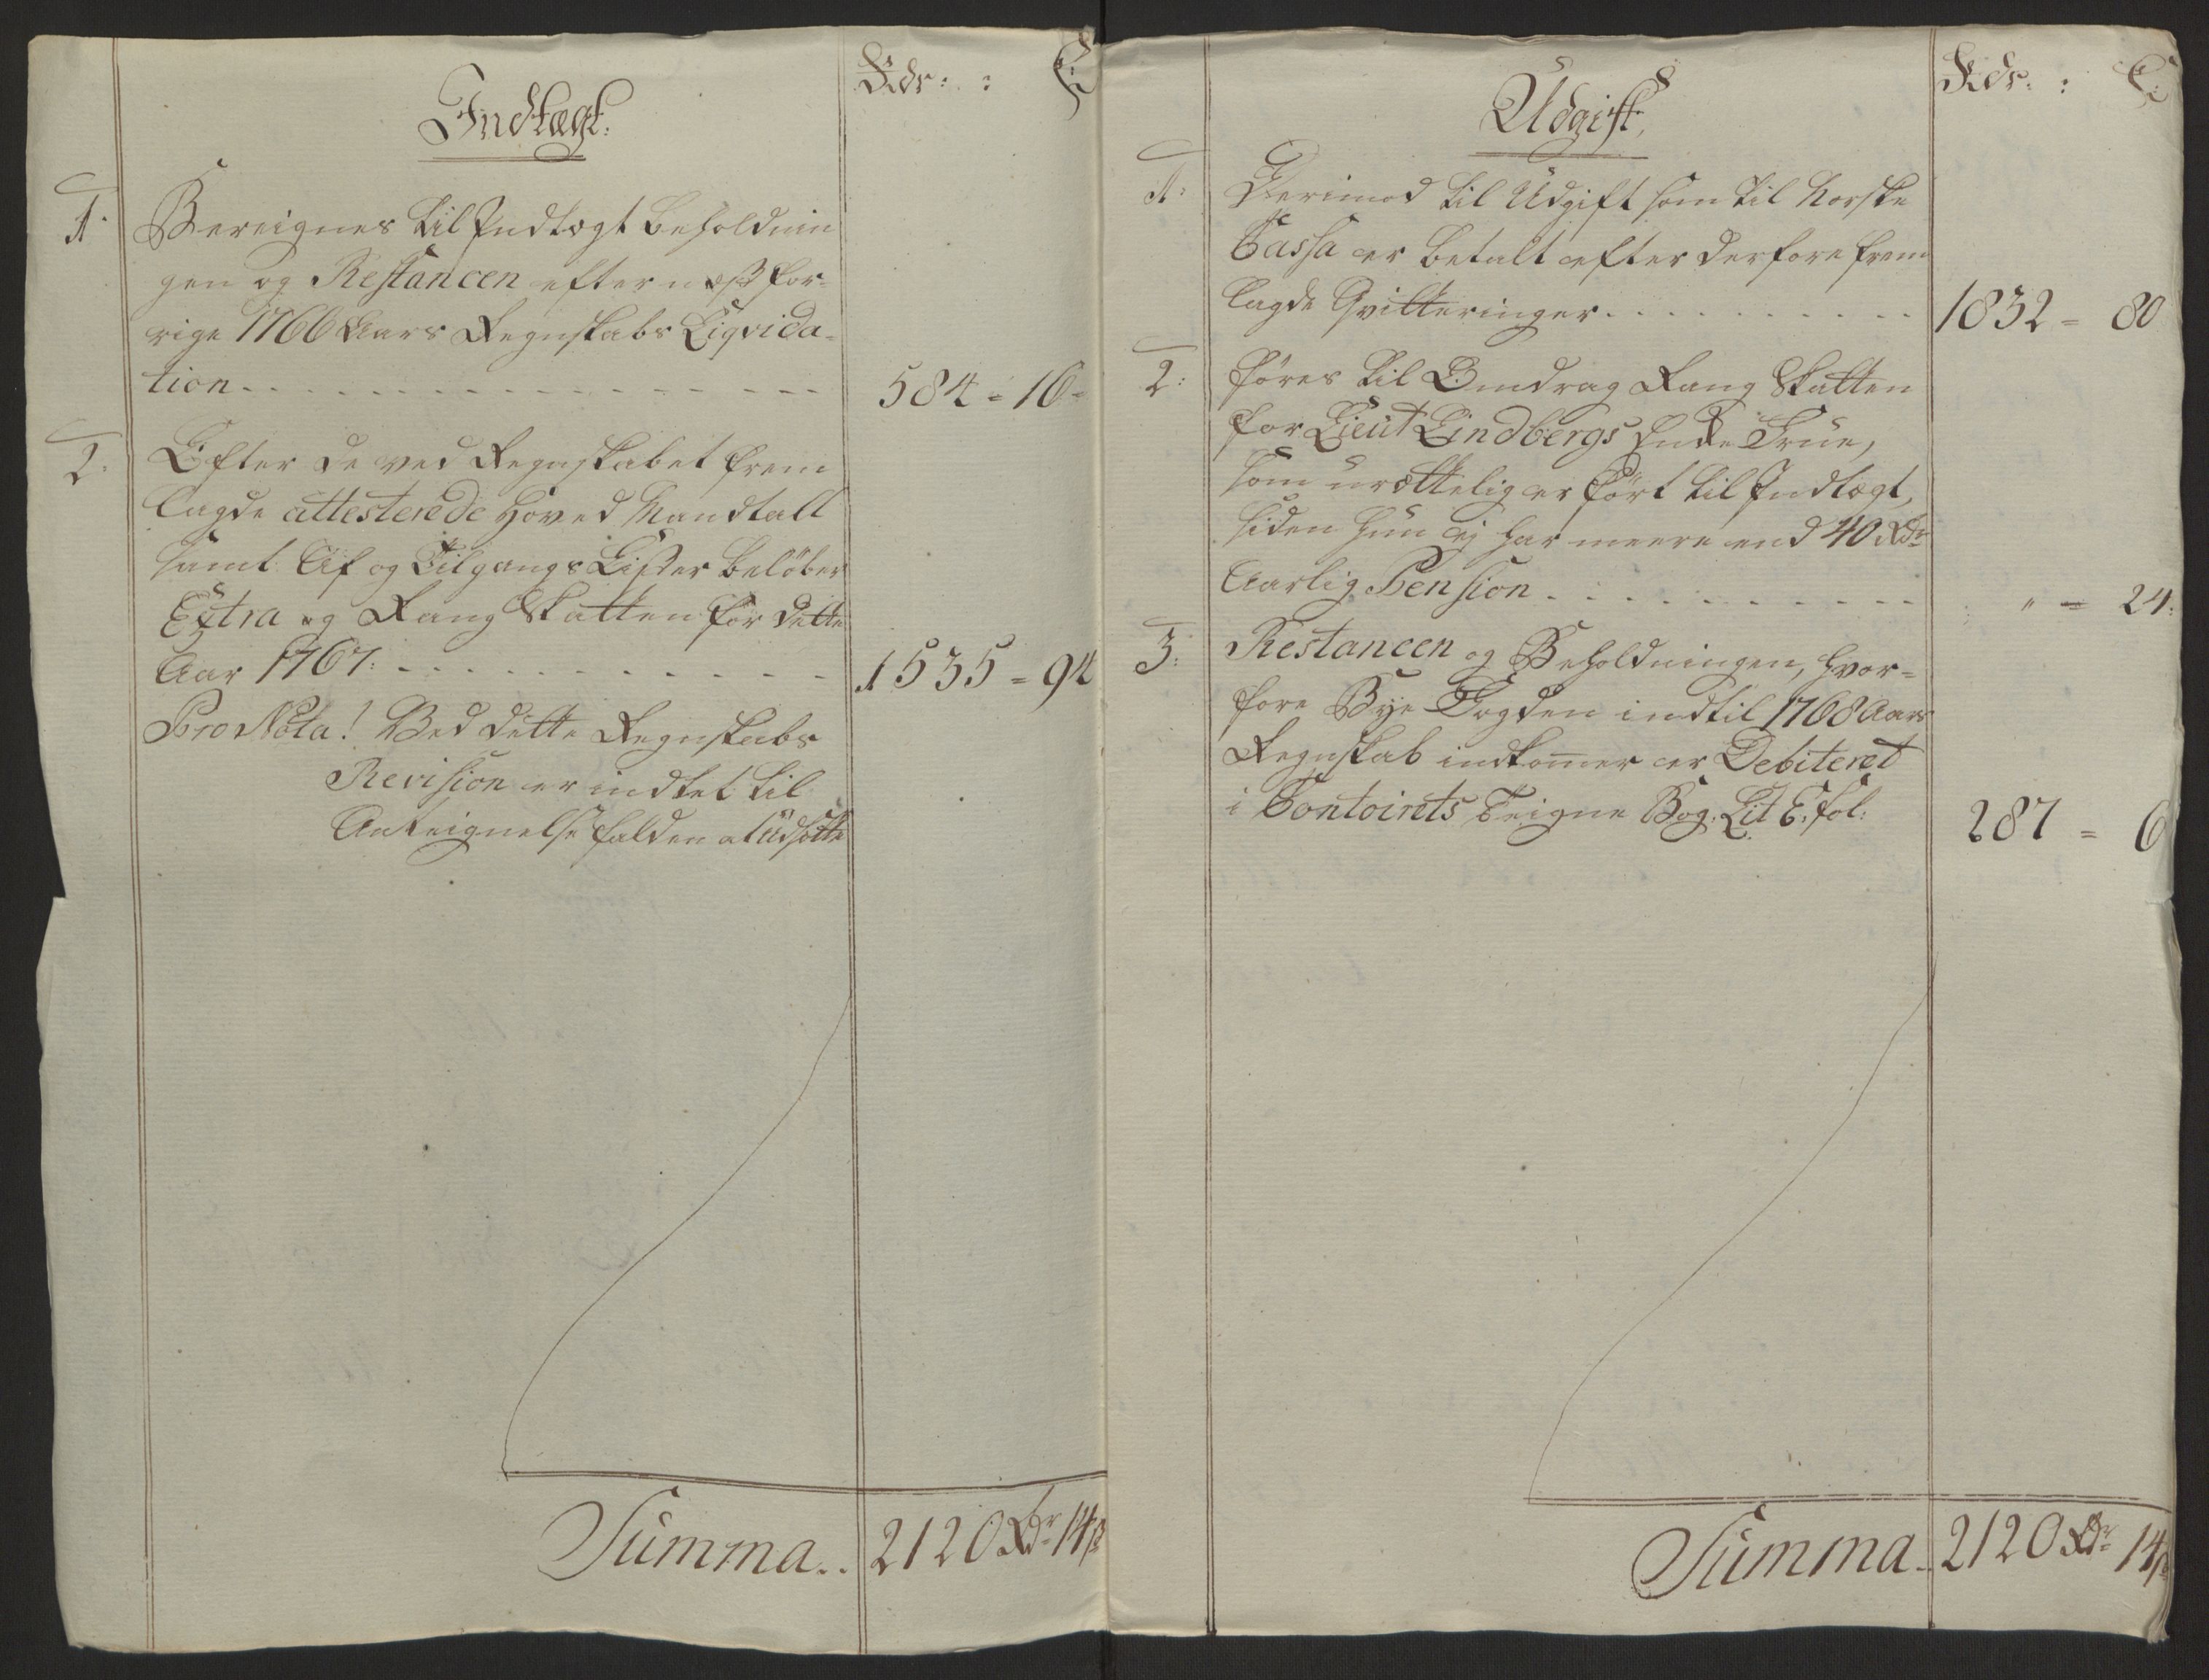 Rdr: : ß:
Indtægt:
1. Bereignes til Indtægt beholdnin
gen og Restancen efter næstfor-
rige 1766 Aars Regnskabs Liqvida-
tion - - - 584 = 16 -
2. Efter de ved Regnskabet frem
lagde attesterede Hoved Mandtall
samt Af og Tilgangs Lister beløber
Extra og Rang Skatten for dette
Aar 1767: - - - 1535 = 94
Pro Nota! Ved dette Regnskabs
Revision er indtet til
Anteignelse falden at Udsætte
Summa.. 2120 Rdr 14 ß
Rdr: : ß:
Udgift,
1: Derimod til Udgift som til Norske
Cassa er betalt efter derfore frem
lagde Qvitteringer. . . . 1832 = 80
2: föres til Omdrag Rang Skatten
for Lieut Lindbergs Enke Frue,
som urættelig er fört til Indtægt,
siden hun ej har meere end 40 Rdr
Aarlig Pension . . . " = 24:
3: Restancen og Beholdningen, hvor-
fore Bye Fogden indtil 1768 Aars
Regnskab indkommer er Debiteret
i Contoirets Teigne Bog. Lit E, fol: 287 = 6
Summa. 2120 Rdr 14 ß